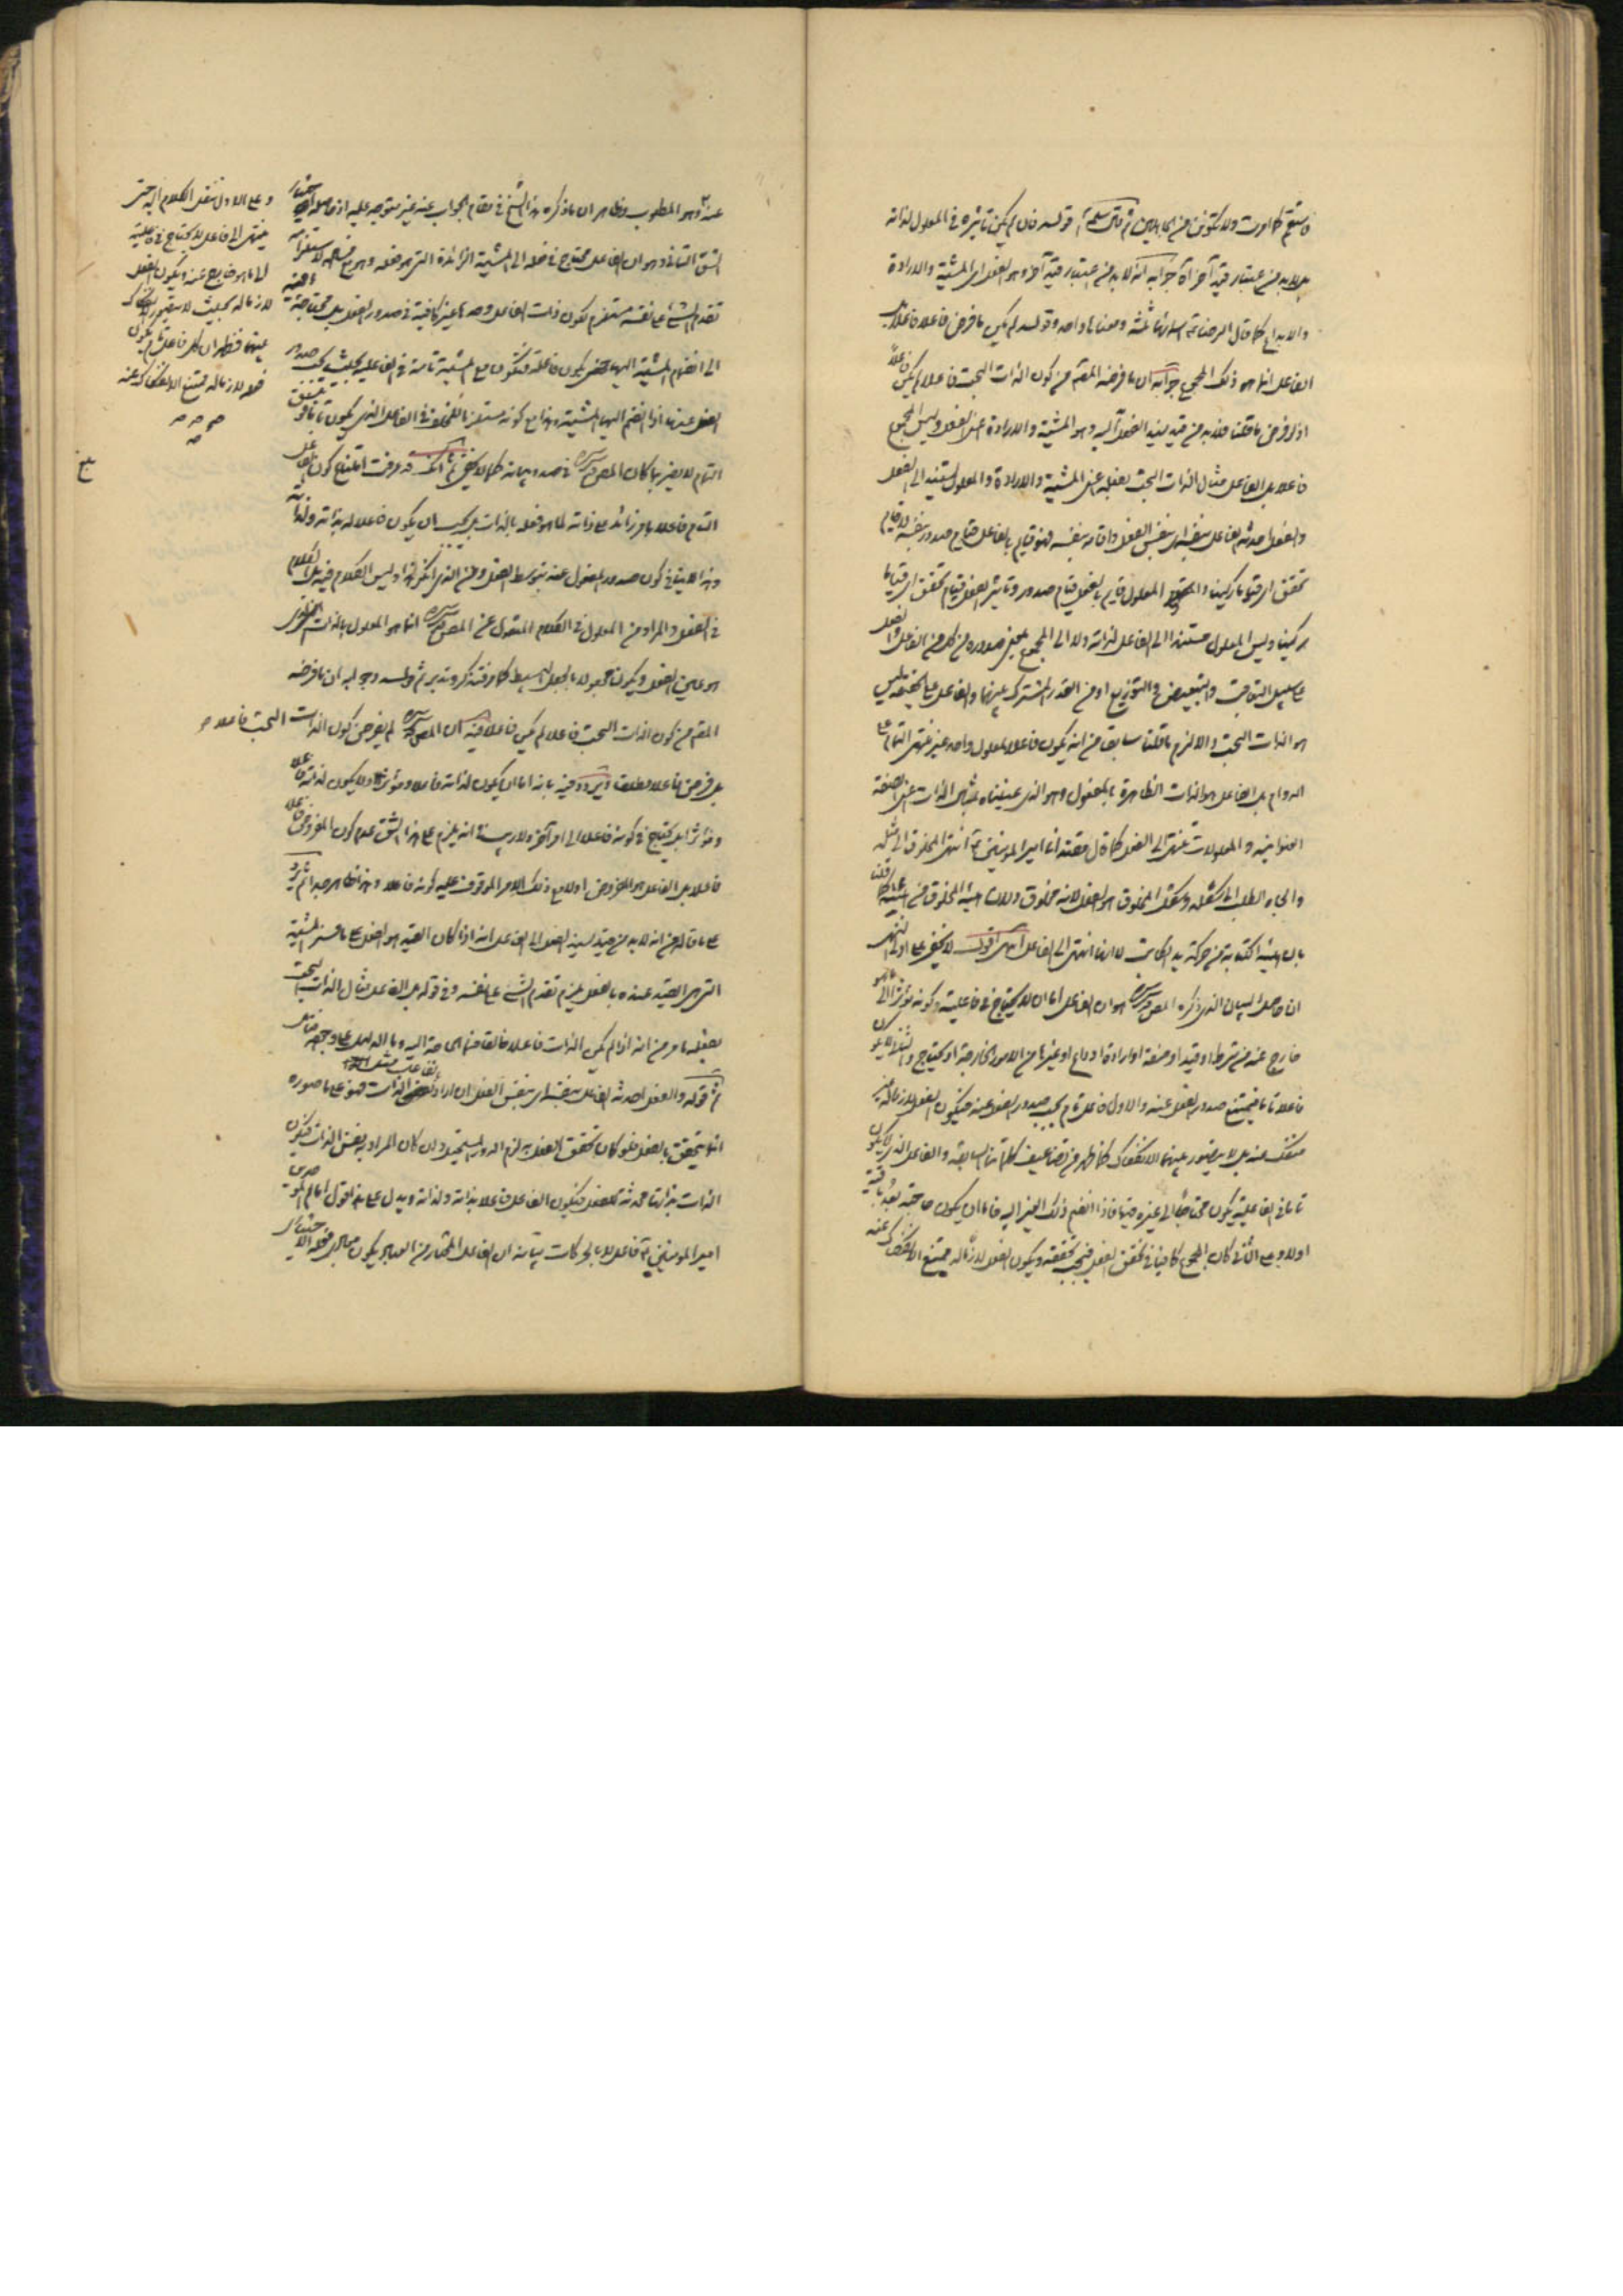 فاستقم كما امرت ولا تكونن من الجاهلين قوله فان لم يكن تأثيره فى المعلول لذاته
بل لا بد من اعتبار قيد آخر آه جوابه انه لا بد من اعتبار قيد آخر وهو الفعل اى المشية والارادة
والابداع كما قال الرضا ع اسماؤها ثلثة ومعناها واحد وقوله لم يكن ما فرض فاعلا فاعلا بل
الفاعل انما هو ذلك المجموع جوابه ان ما فرضه المقدم من كون الذات البحت فاعلا لم يكن فاعلاً
اذ لو فرض ما قلنا فلا بد من قيد يسند الفعل اليه وهو المشية والارادة اعنى الفعل وليس المجموع
فاعلا بل الفاعل مثال الذات البحت بفعله اعنى المشية والارادة والمعلول يستند الى الفعل
والفعل احدثه الفاعل بنفسه اى بنفس الفعل واقامه بنفسه فهو قائم بالفاعل قيام صدور وبنفسه قيام
تحقق اى قياما ركنيا و المعلول قائم بالفعل قيام صدور وتأثير الفعل قيام تحقق اى قياما
ركنيا وليس المعلول مستندا الى الفاعل لذاته ولا الى المجموع بمعنى صدوره من كل من الفاعل والفعل
على سبيل التعاقب والتبعيض والتوزيع او من القدر المشترك بينهما والفاعل على الحقيقة ليس
هو الذات البحت والا لزم ما قلنا سابقا من انه يكون فاعلا لمعلول واحد غير منتهى
الدوام بل الفاعل هو الذات الظاهرة بالمفعول وهو الذى عنيناه بمثال الذات اعنى الصفة
العنوانية والمعلولات تنتهى الى الفعل كما قال مقتدانا امير المؤمنين ع انتهى المخلوق الى مثله
والجاه الطلب الى شكله وشكل المخلوق هو الفعل لانه مخلوق
الكتابة من حركة يد الكاتب لا انها انتهى الى الفاعل انتهى اقول لا يخفى على اولى النهى
ان حاصل البيان الذى ذكره المص قدس سره هو ان الفاعل اما ان لا يحتاج فى فاعليته وكونه مؤثرا الى ما هو
خارج عنه من شرط او قيد او صفة او ارادة او داع او غيرها من الامور الخارجة او يحتاج
فاعلا تاما فيمتنع صدور الفعل عنه والاول فاعل تام يجب صدور الفعل عنه فيكون الفعل لازما له غير
منفك عنه بل لا يتصور بينهما الانفكاك كما ظهر من تضاعيف كلماتنا السابقة والفاعل الذى لا يكون
تاما فى الفاعلية يكون محتاجا الى غيره فيها فاذا انضم ذلك الغير اليه فاما ان يكون حاجته بعد باقية
اولا وعلى الثانى كان المجموع كافيا فى تحقق الفعل فيجب تحققه ويكون الفعل لازما له ممتنع الانفكاك عنه
عنه وهو المطلوب وظاهر ان ما ذكره هذا الشيخ فى مقام الجواب عنه غير متوجه عليه اذ حاصله اختيار
الشق الثانى وهو ان الفاعل محتاج فى فعله الى المشية الزائدة التى هو فعله وهو مع استلزامه
تقدم الشئ على نفسه مستلزم لكون ذات الفاعل وحدها غير كافية فى صدور الفعل بل محتاجة فيه
الى انضمام المشية اليها حتى يكون فاعلة فتكون مع المشية تامة فى الفاعلية بحيث يجب صدور
الفعل عنها اذا انضم اليها المشية وهذا مع كونه مستلزما للخلف فى الفاعل الذى يكون تاما فوق
التمام لا يضر بما كان المص قدس سره فى صدد بيانه كما لا يخفى ثم انك قد عرفت امتناع كون الفاعل
التام فاعلا بامر زائد على ذاته لما هو فعله بالذات بل يجب ان يكون فاعلا له بذاته ولذاته
وهذا لا ينافى كون صدور المفعول عنه بتوسط الفعل ومن الذى انكر هذا وليس الكلام فيه بل الكلام
فى الفعل والمراد من المعلول فى الكلام المنقول عن المص قدس سره انما هو المعلول بالذات الذى
هو عين الفعل ويكون مجعولا بالجعل البسيط كما عرفته فتذكر وتدبر ثم قوله وجوابه ان ما فرضه
المقدم من كون الذات البحت فاعلا لم يكن فاعلا فيه ان المص قدس سره لم يفرض كون الذات البحت فاعلا
بل فرض فاعلا مطلقا وردد فيه بانه اما ان يكون لذاته فاعلا ومؤثرا ولا يكون لذاته فاعلا
ومؤثرا بل يحتاج فى كونه فاعلا الى امر آخر ولا ريب فى انه يلزم على هذا الشق عدم كون المفروض فاعلا
فاعلا بل الفاعل هو المفروض اولا مع ذلك الامر الموقوف عليه كونه فاعلا وهذا ظاهر جدا ثم يرد
على ما قاله من انه لا بد من قيد يسند الفعل الى الفاعل انه اذا كان القيد هو الفعل على ما فسر المشية
التى هى القيد عنده بالفعل يلزم تقدم الشئ على نفسه وفى قوله بل الفاعل مثال الذات البحت
بفعله ما مر من انه اذا لم يكن الذات فاعلا
ثم قوله والفعل احدثه الفاعل بنفسه اى بنفس الفعل ان اراد
انما يتحقق بالفعل فلو كان تحقق الفعل به لزم الدور المستحيل وان كان المراد به نفس الذات فيكون
الذات بذاتها محدثة للفعل فيكون الفاعل فاعلا بذاته ولذاته ويدل على هذا قول امام الموحدين
امير المؤمنين ع فاعل لا بالحركات بيانه ان الفاعل المختار من العباد يكون
وعلى الاول ننقل الكلام اليه حتى
ينتهى الى فاعل لا يحتاج فى فاعليته
الى ما هو خارج عنه ويكون الفعل
لازما له بحيث لا يتصور الانفكاك
بينهما فظهر ان كل فاعل تام يكون
فعله لازما له ممتنع الانفكاك عنه